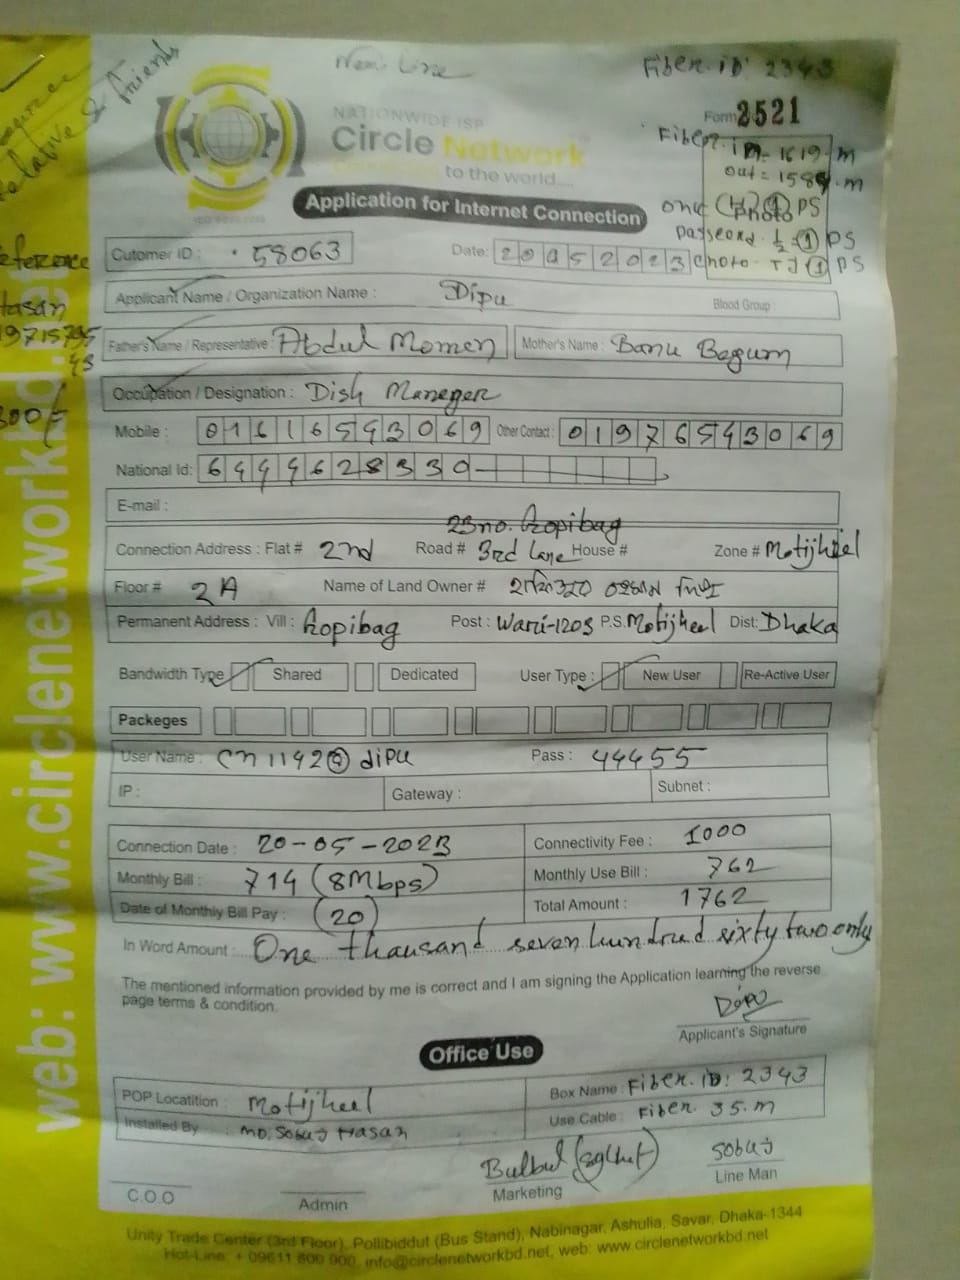 New Line
Fiber.iD: 2343
relative & friends
NATIONWIDE ISP
Circle Network
to the world....
Form 2521
Fiber.in = 1619.m
out = 1584.m
Photo
Application for Internet Connection
Cutomer ID : 58063
Date: 20052023
Reference
Hasan
Applicant Name / Organization Name : Dipu
Blood Group :
Father's Name / Representative : Abdul Momen
Mother's Name : Banu Begum
Occupation / Designation : Dish Maneger
Mobile : 01616593069 Other Contact : 01976593069
National Id:
E-mail :
23no. Gopibag
Connection Address : Flat # 2nd Road # 3rd Lane House # Zone # Motijheel
Floor # 2A Name of Land Owner #
Permanent Address : Vill : Gopibag Post : Wari-1203 P.S. Motijheel Dist: Dhaka
Bandwidth Type Shared Dedicated User Type : New User Re-Active User
Packeges
User Name : Pass : 44455
IP : Gateway : Subnet :
Connection Date : 20-05-2023 Connectivity Fee : 1000
Monthly Bill : 714 (8Mbps) Monthly Use Bill : 762
Date of Monthly Bill Pay : (20) Total Amount : 1762
In Word Amount : One thausand seven hundred sixty two only
The mentioned information provided by me is correct and I am signing the Application learning the reverse
page terms & condition.
Dipu
Applicant's Signature
Office Use
POP Locatition : Motijheel Box Name : Fiber.iD: 2343
Installed By : MD. Sobuj Hasan Use Cable : Fiber. 35.m
Bulbul Sobuj
C.O.O Admin Marketing Line Man
Unity Trade Center (3rd Floor), Pollibiddut (Bus Stand), Nabinagar, Ashulia, Savar, Dhaka-1344
Hot-Line: + 09611 800 900, info@circlenetworkbd.net, web: www.circlenetworkbd.net
web: www.circlenetworkbd.net